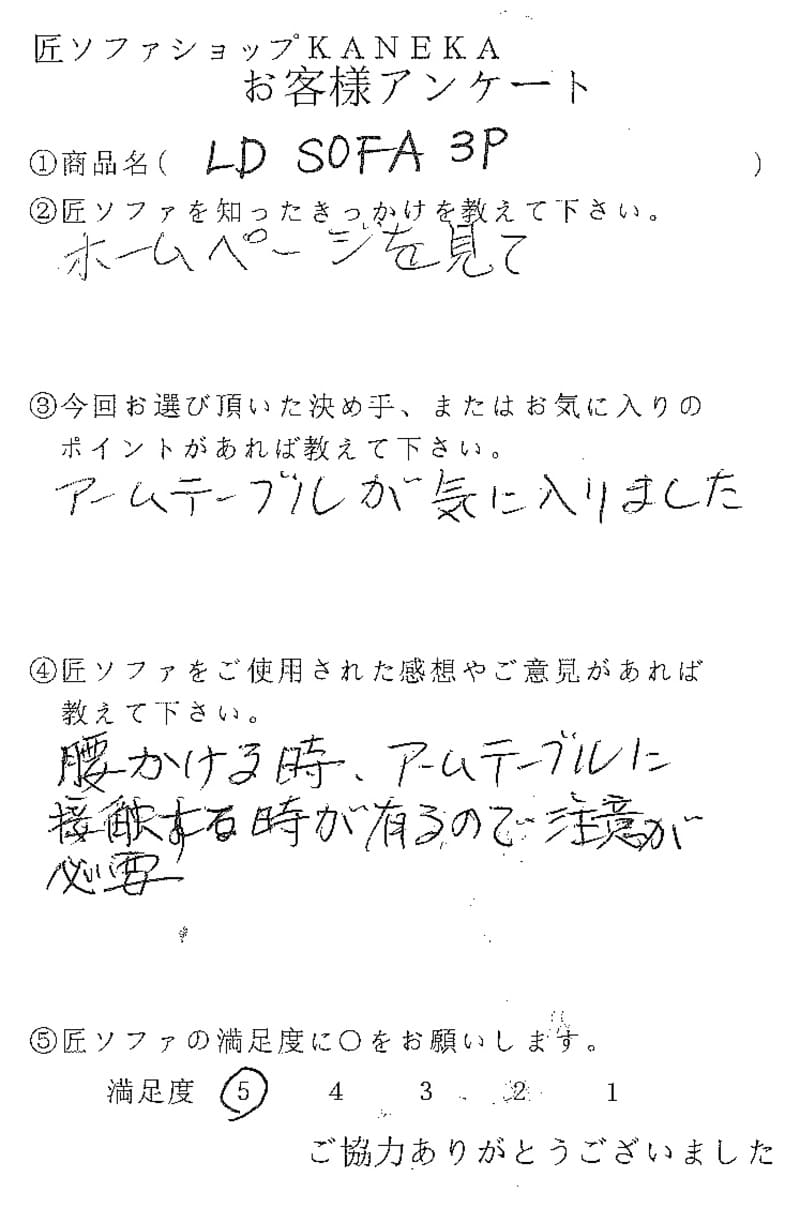 匠ソファショップKANEKA
お客様アンケート
①商品名( LD SOFA 3P )
②匠ソファを知ったきっかけを教えて下さい。
ホームページを見て
③今回お選び頂いた決め手、またはお気に入りの
ポイントがあれば教えて下さい。
アームテーブルが気に入りました
④匠ソファをご使用された感想やご意見があれば
教えて下さい。
腰かける時、アームテーブルに
接触する時が有るので注意が
必要
⑤匠ソファの満足度に〇をお願いします。
満足度 5 4 3 2 1
ご協力ありがとうございました